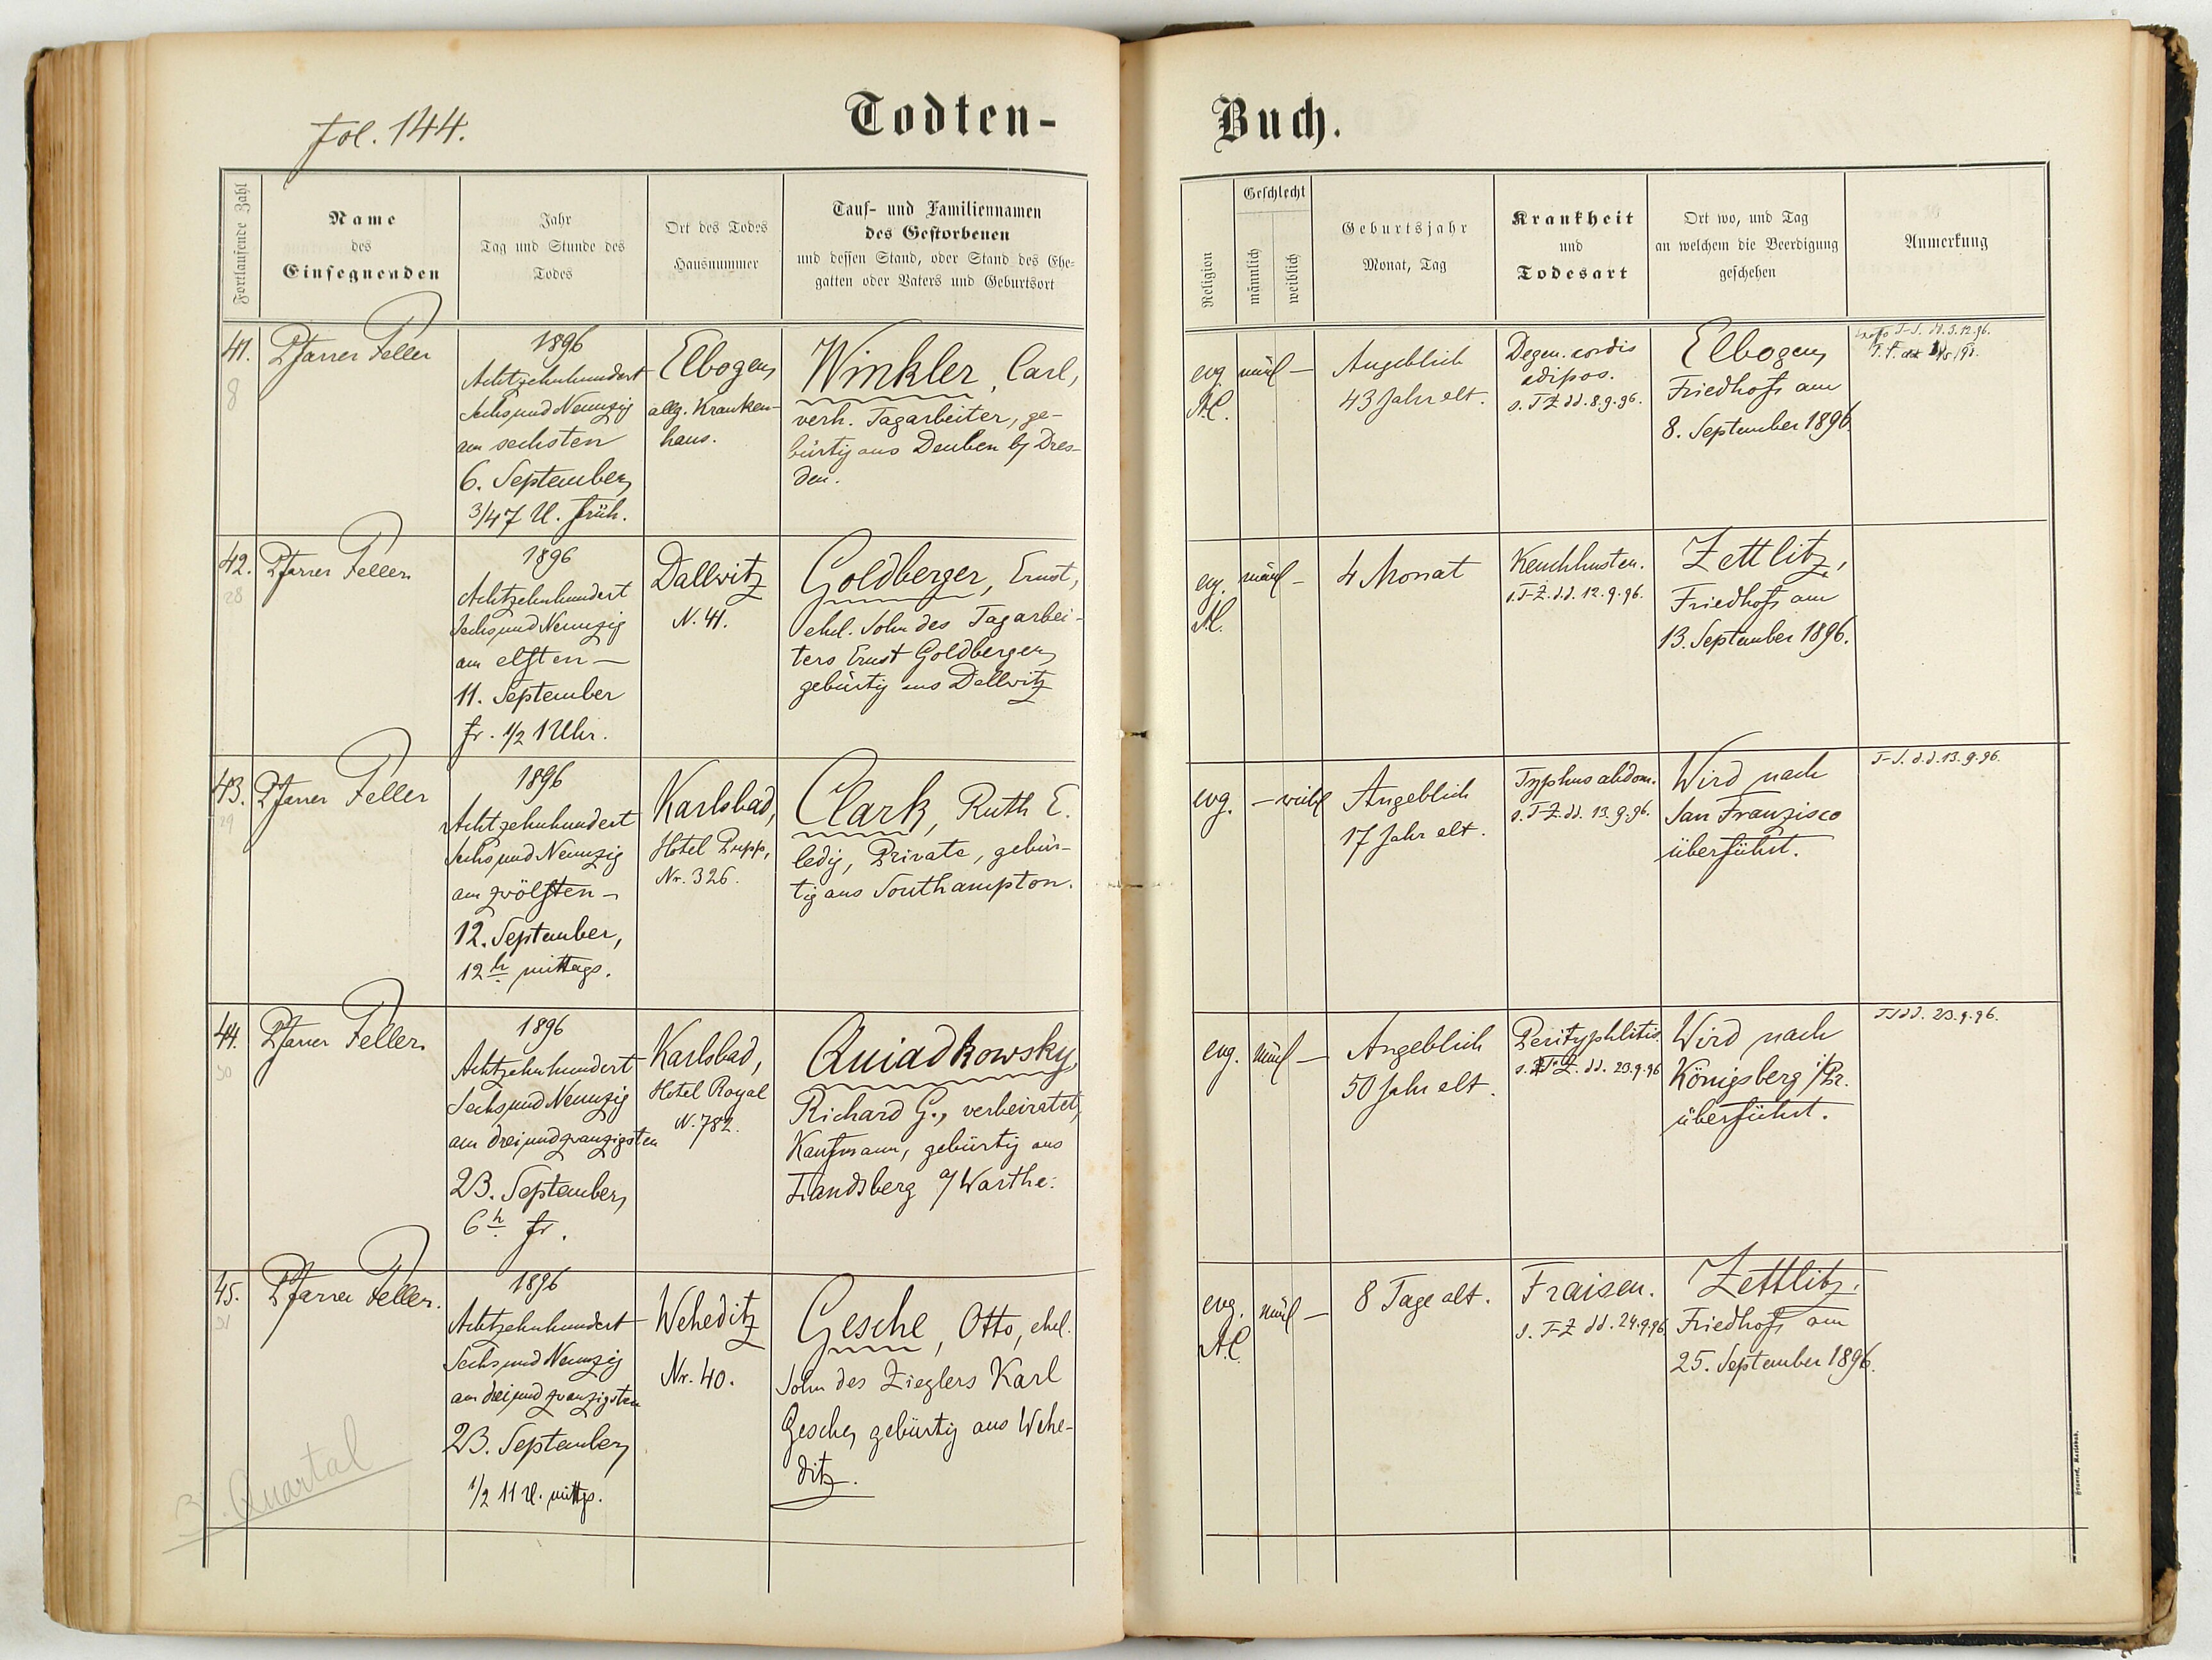 Fol. 144.
Todten-
Buch.
Fortlaufende Zahl
Name
des
Einsegnenden
Jahr
Tag und Stunde des
Todes
Ort des Todes
Hausnummer
Tauf- und Familiennamen
des Gestorbenen
und dessen Stand, oder Stand des Ehe-
gatten oder Vaters und Geburtsort
Religion
Geschlecht
männlich
weiblich
Geburtsjahr
Monat, Tag
Krankheit
und
Todesart
Ort wo, und Tag
an welchem die Beerdigung
geschehen
Anmerkung
41.
8
Pfarrer Feller
1896
Achtzehnhundert
Sechs und Neunzig
am sechsten
6. September,
3/47 U. früh.
Elbogen,
allg. Kranken-
haus.
Winkler, Carl,
verh. Tagarbeiter, ge-
bürtig aus Deuben b/ Dres-
den.
evg.
A.C.
männl —
Angeblich
43 Jahr alt.
Degen. cordis
adipos.
s. T-Z dd. 8.9.96.
Elbogen,
Friedhofs am
8. September 1896.
T-S. d. 3.12.96.
42.
28
Pfarrer Feller.
1896
Achtzehnhundert
Sechs und Neunzig
am elften —
11. September
fr. 1/2 1 Uhr.
Dallwitz
N. 41.
Goldberger, Ernst,
ehel. Sohn des Tagarbei-
ters Ernst Goldberger,
gebürtig aus Dallwitz
evg.
A.C.
männl —
4 Monat
Keuchhusten.
s. T-Z. d.d. 12.9.96.
Zettlitz,
Friedhofs am
13. September 1896.
43.
29
Pfarrer Feller
1896
Achtzehnhundert
Sechs und Neunzig
am zwölften —
12. September,
12 h mittags.
Karlsbad,
Hotel Pupp,
Nr. 326.
Clark, Ruth E.
ledig, Private, gebür-
tig aus Southampton.
evg.
— weibl
Angeblich
17 Jahr alt.
Typhus abdom.
s. T-Z. dd. 13.9.96.
Wird nach
San Franzisco
überführt.
T-S. d.d. 13.9.96.
44.
30
Pfarrer Feller.
1896
Achtzehnhundert
Sechs und Neunzig
am dreiundzwanzigsten
23. September,
6 h fr.
Karlsbad,
Hotel Royal
N. 782.
Quiadkowsky,
Richard G., verheiratet,
Kaufmann, gebürtig aus
Landsberg a/ Warthe.
evg.
männl —
Angeblich
50 Jahr alt.
Perityphlitis.
s. T-Z. dd. 23.9.96
Wird nach
Königsberg i/Pr.
überführt.
TS dd. 23.9.96.
45.
31
Pfarrer Feller.
1896
Achtzehnhundert
Sechs und Neunzig
am dreiundzwanzigsten
23. September,
1/2 11 U. mittgs.
Weheditz
Nr. 40.
Gesche, Otto, ehel.
Sohn des Zieglers Karl
Gesche, gebürtig aus Wehe-
ditz.
evg.
A.C.
männl —
8 Tage alt.
Fraisen.
s. T-Z dd. 24.9.96
Zettlitz.
Friedhofs am
25. September 1896.
3. Quartal